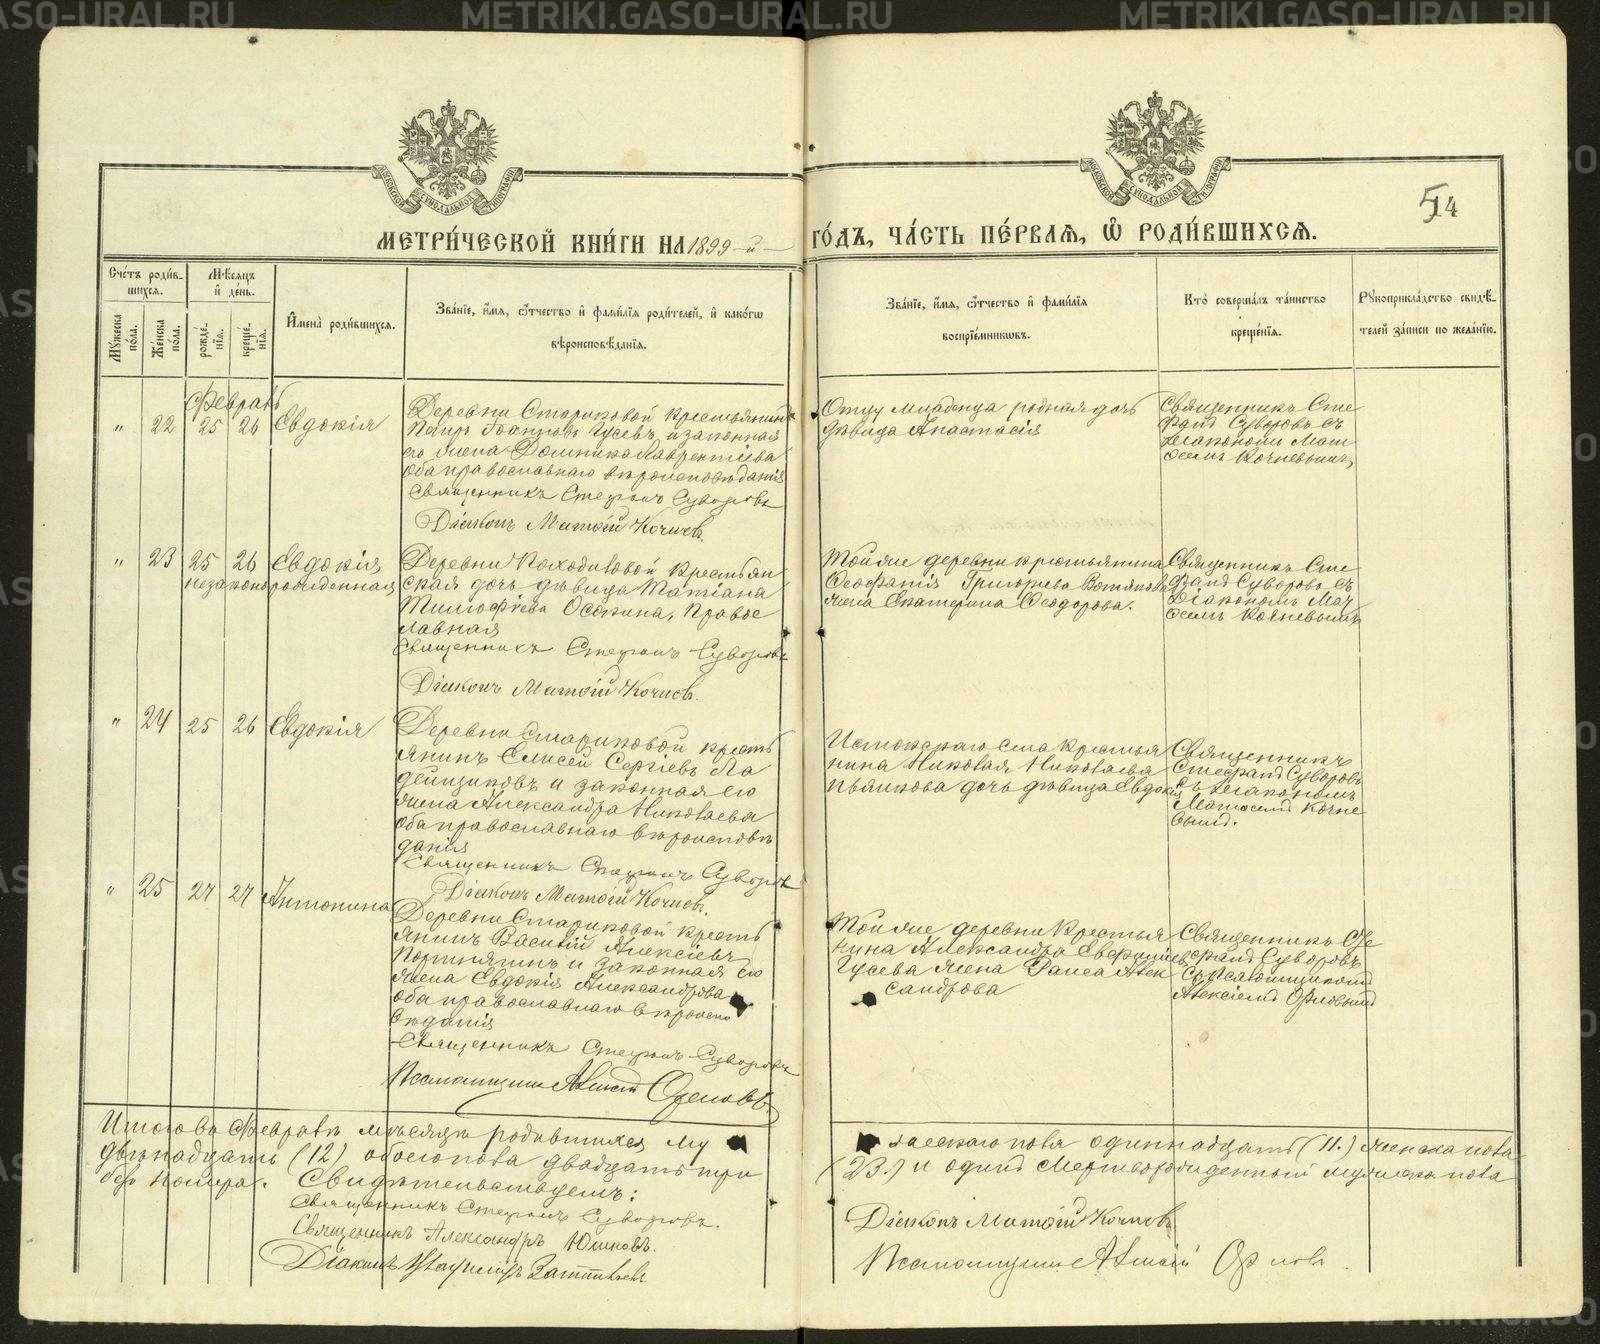 METRIKI.GASO-URAL.RU
МЕТРИ́ЧЕСКОЙ КНИ́ГИ НА 1899-й
ГО́ДЪ, ЧА́СТЬ ПЕ́РВАЯ, Ѡ҆ РОДИ́ВШИХСЯ.
54
Сче́тъ роди́в-
шихся.
Мꙋ́жеска
по́ла.
Же́нска
по́ла.
Мѣ́сяцъ
и҆ де́нь.
рожде́-
нїя.
креще́-
нїя.
И҆мена̀ роди́вшихся.
Зва́нїе, и҆́мя, ѻ҆́тчество и҆ фами́лїя роди́телей, и҆ како́гѡ
вѣроисповѣ́данїя.
Зва́нїе, и҆́мя, ѻ҆́тчество и҆ фами́лїя
воспрїе́мникѡвъ.
Кто̀ соверша́лъ та́инство
креще́нїя.
Рꙋкоприкла́дство свидѣ́-
телей за́писи по жела́нїю.
Февраль
" 22 25 26 Евдокія
Деревни Стариковой крестьянинъ
Петръ Іоанновъ Гусевъ и законная
его жена Домника Лаврентіева
оба православнаго вѣроисповѣданія
Священникъ Стефанъ Суворовъ
Діаконъ Матѳій Кочневъ.
Отцу младенца родная дочь
дѣвица Анастасія
Священникъ Сте
фанъ Суворовъ съ
діакономъ Мат
ѳеемъ Кочневымъ
" 23 25 26 Евдокія
незаконорожденная
Деревни
крестьян
ская дочь дѣвица Татіана
Тимофѣева Осокина, Правос
лавная
Священникъ Стефанъ Суворовъ
Діаконъ Матѳій Кочневъ.
Той же деревни крестьянина
Григорьева
жена Екатерина Ѳеодорова.
Священникъ Сте
фанъ Суворовъ съ
Діакономъ Мат
ѳеемъ Кочневымъ
" 24 25 26 Евдокія
Деревни Стариковой кресть
янинъ Елисей Сергіевъ Ла
дейщиковъ и законная его
жена Александра Николаева
оба православнаго вѣроисповѣ
данія
Священникъ Стефанъ Суворовъ
Діаконъ Матѳій Кочневъ.
Истокскаго села крестья
нина Николая Николаева
Пьянкова дочь дѣвица Евдокія
Священникъ
Стефанъ Суворовъ
съ діакономъ
Матѳеемъ Кочне
вымъ.
" 25 27 27 Антонина
Деревни Стариковой кресть
янинъ Василій Алексіевъ
и законная его
жена Евдокія Александрова
оба православнаго вѣроиспо
вѣданія
Священникъ Стефанъ Суворовъ
Псаломщикъ Алексій Орловъ
Той же деревни крестья
нина Александра
Гусева жена Раиса Алек
сандрова
Священникъ Сте
фанъ Суворовъ
съ псаломщикомъ
Алексіемъ Орловымъ
Итого въ Февралѣ мѣсяцѣ родившихся му
жескаго пола одиннадцать (11.) женска пола
двѣнадцать (12) обоего пола двадцать три
(23.) и одинъ мертворожденный мужеска пола
безъ номера. Свидѣтельствуемъ:
Священникъ Стефанъ Суворовъ.
Священникъ Александръ Юшковъ.
Діаконъ
Діаконъ Матѳій Кочневъ
Псаломщикъ Алексій Орловъ.